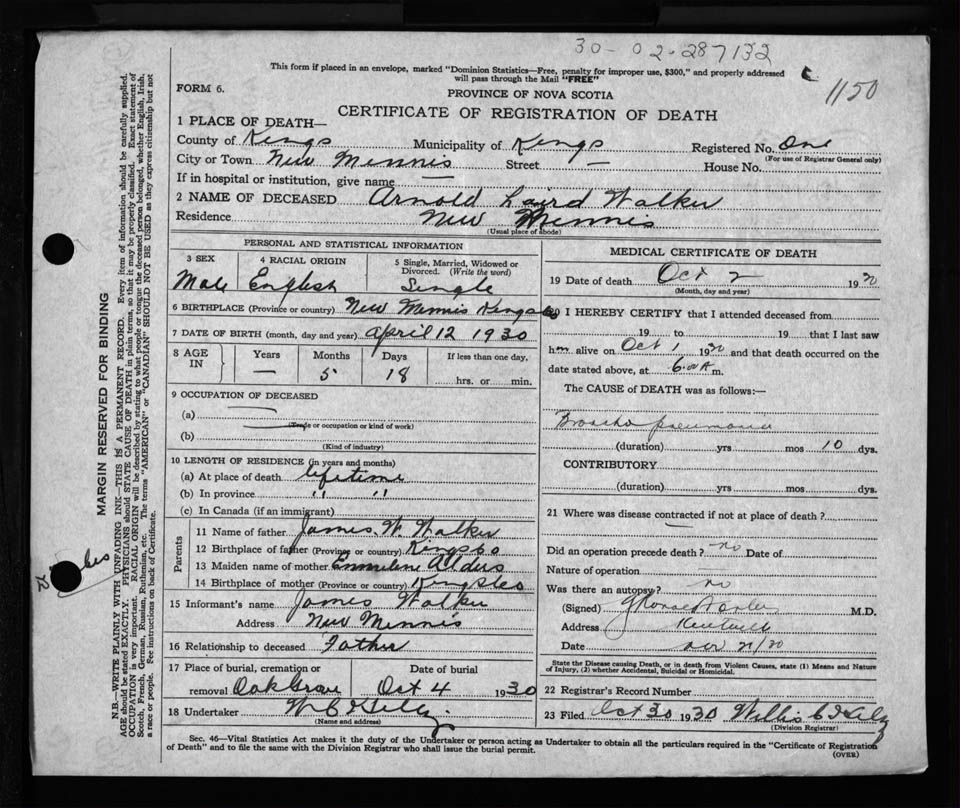 30-02-287132
1150
This form if placed in an envelope, marked "Dominion Statistics—Free, penalty for improper use, $300," and properly addressed
will pass through the Mail "FREE"
FORM 6.
PROVINCE OF NOVA SCOTIA
CERTIFICATE OF REGISTRATION OF DEATH
1 PLACE OF DEATH—
County of Kings Municipality of Kings Registered No. One
(For use of Registrar General only)
City or Town New Minnis Street — House No.
If in hospital or institution, give name —
2 NAME OF DECEASED Arnold Laird Walker
Residence New Minnis
(Usual place of abode)
PERSONAL AND STATISTICAL INFORMATION
3 SEX 4 RACIAL ORIGIN 5 Single, Married, Widowed or
Divorced. (Write the word)
Male English Single
6 BIRTHPLACE (Province or country) New Minnis Kings Co
7 DATE OF BIRTH (month, day and year) April 12 1930
8 AGE IN Years Months Days If less than one day,
— 5 18 hrs. or min.
9 OCCUPATION OF DECEASED
(a) —
(Trade or occupation or kind of work)
(b)
(Kind of industry)
10 LENGTH OF RESIDENCE (in years and months)
(a) At place of death lifetime
(b) In province " "
(c) In Canada (if an immigrant)
Parents
11 Name of father James W. Walker
12 Birthplace of father (Province or country) Kings Co
13 Maiden name of mother Emmelene Alders
14 Birthplace of mother (Province or country) Kings Co
15 Informant's name James Walker
Address New Minnis
16 Relationship to deceased Father
17 Place of burial, cremation or Date of burial
removal Oak Grove Oct 4 1930
18 Undertaker W C Kelly
(Name and address)
MEDICAL CERTIFICATE OF DEATH
19 Date of death Oct 2 1930
(Month, day and year)
20 I HEREBY CERTIFY that I attended deceased from
19 to 19 that I last saw
him alive on Oct 1 1930 and that death occurred on the
date stated above, at 6.00 A m.
The CAUSE of DEATH was as follows:—
Broncho pneumonia
(duration) yrs mos 10 dys.
CONTRIBUTORY
(duration) yrs mos dys.
21 Where was disease contracted if not at place of death?
Did an operation precede death? no Date of
Nature of operation
Was there an autopsy? no
(Signed) M.D.
Address Kentville
Date Nov 21/30
State the Disease causing Death, or in death from Violent Causes, state (1) Means and Nature
of Injury, (2) whether Accidental, Suicidal or Homicidal.
22 Registrar's Record Number
23 Filed Oct 30 1930 Willis C Kelly
(Division Registrar)
Sec. 46—Vital Statistics Act makes it the duty of the Undertaker or person acting as Undertaker to obtain all the particulars required in the "Certificate of Registration
of Death" and to file the same with the Division Registrar who shall issue the burial permit.
(OVER)
MARGIN RESERVED FOR BINDING
N.B.—WRITE PLAINLY WITH UNFADING INK—THIS IS A PERMANENT RECORD. Every item of information should be carefully supplied.
AGE should be stated EXACTLY. PHYSICIANS should STATE CAUSE OF DEATH in plain terms, so that it may be properly classified. Exact statement of
OCCUPATION is very important. RACIAL ORIGIN will be described by stating to what people or tongue the deceased person belonged, whether English, Irish,
Scotch, French, German, Russian, Ruthenian, etc. The terms "AMERICAN" or "CANADIAN" SHOULD NOT BE USED as they express citizenship but not
a race or people. See instructions on back of Certificate.